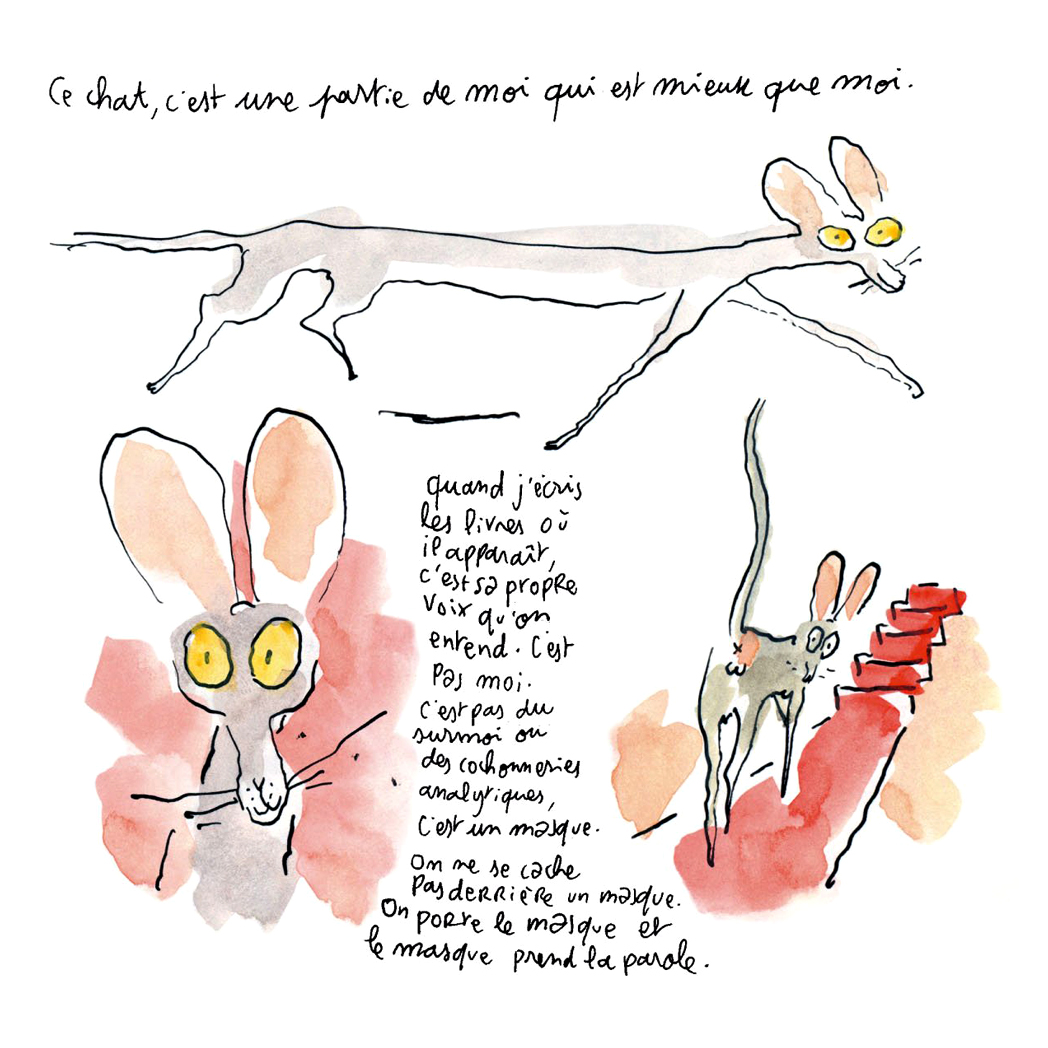 Ce chat, c'est une partie de moi qui est mieux que moi.
quand j'écris
les livres où
il apparaît,
c'est sa propre
voix qu'on
entend. C'est
pas moi.
c'est pas du
surmoi ou
des cochonneries
analytiques,
c'est un masque.
On ne se cache
pas derrière un masque.
On porte le masque et
le masque prend la parole.